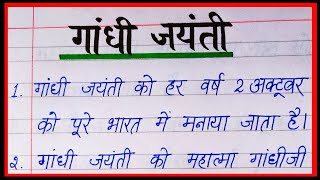 गांधी जयंती
1. गांधी जयंती को हर वर्ष 2 अक्टूबर
को पूरे भारत में मनाया जाता है।
२. गांधी जयंती को महात्मा गांधीजी